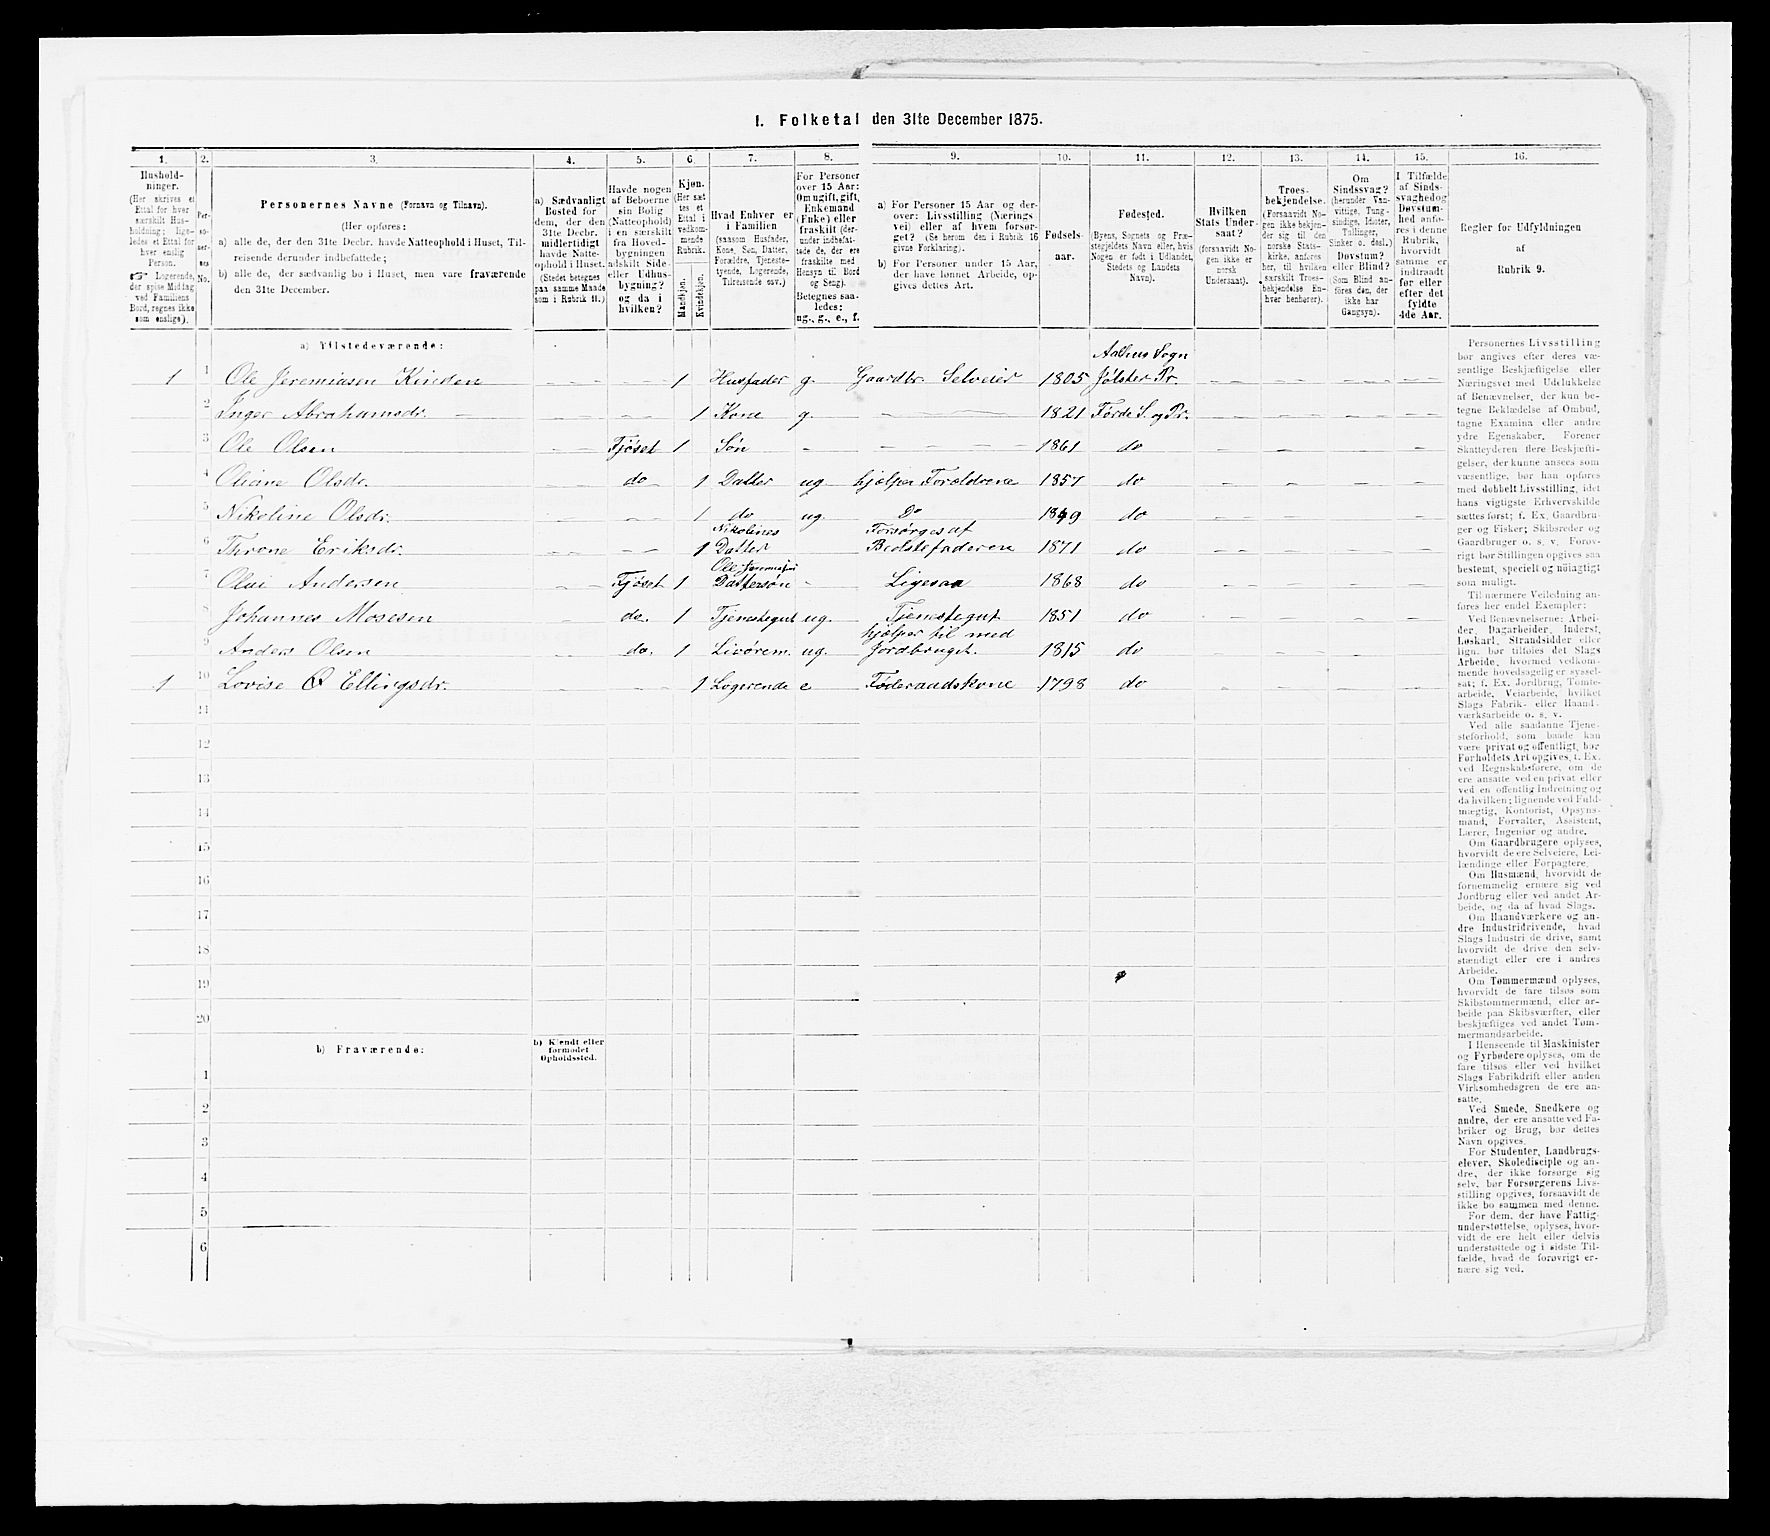 I. Folketal den 31te December 1875.
1. 2. 3. 4. 5. 6. 7. 8. 9. 10. 11. 12. 13. 14. 15. 16.
Hushold-
ninger.
(Her skrives et
Ettal for hver
særskilt Hus-
holdning; lige-
ledes et Ettal for
hver enslig
Person.
☞ Logerende,
der spise Middag
ved Familiens
Bord, regnes ikke
som enslige).
Per-
so-
ner-
nes
No.
Personernes Navne (Fornavn og Tilnavn).
(Her opføres:
a) alle de, der den 31te Decbr. havde Natteophold i Huset, Til-
reisende derunder indbefattede;
b) alle de, der sædvanlig bo i Huset, men vare fraværende
den 31te December.
a) Sædvanligt
Bosted for
dem, der den
31te Decbr.
midlertidigt
havde Natte-
ophold i Huset.
(Stedet betegnes
paa samme Maade
som i Rubrik 11.)
Havde nogen
af Beboerne
sin Bolig
(Natteophold)
i en særskilt
fra Hoved-
bygningen
adskilt Side-
eller Udhus-
bygning?
og da i
hvilken?
Kjøn.
(Her sæt
tes et
Ettal i
vedkom-
mende
Rubrik.
Mandkjøn.
Kvindekjøn.
Hvad Enhver er
i Familien
(saasom Husfader,
Kone, Søn, Datter,
Forældre, Tjeneste-
tyende, Logerende,
Tilreisende osv.)
For Personer
over 15 Aar:
Om ugift, gift,
Enkemand
(Enke) eller
fraskilt (der-
under indbefat-
tede de, der ere
fraskilte med
Hensyn til Bord
og Seng).
Betegnes saa-
ledes:
ug., g., e., f.
a) For Personer 15 Aar og der-
over: Livsstilling (Nærings
vei) eller af hvem forsør-
get? (Se herom den i Rubrik 16
givne Forklaring).
b) For Personer under 15 Aar,
der have lønnet Arbeide, op-
gives dettes Art.
Fødsels-
aar.
Fødested.
(Byens, Sognets og Præ-
stegjeldets Navn eller, hvis
Nogen er født i Udlandet,
Stedets og Landets
Navn).
Hvilken
Stats Under-
saat?
(forsaavidt No-
gen ikke er
norsk
Undersaat).
Troes-
bekjendelse.
(Forsaavidt No-
gen ikke bekjen-
der sig til den
norske Stats-
kirke, anføres
her, til hvilken
særskilt Troes-
bekjendelse En-
hver henhører).
Om
Sindssvag?
(herunder Van-
vittige, Tung-
sindige, Idioter,
Tullinger,
Sinker o. desl.)
Døvstum?
eller Blind?
(Som Blind an-
føres den, der
ikke har
Gangsyn).
I Tilfælde
af Sinds-
svaghed og
Døvstum-
hed anfø-
res i denne
Rubrik,
hvorvidt
samme er
indtraadt
før eller
efter det
fyldte
4de Aar.
Regler for Udfyldningen
af
Rubrik 9.
a) Tilstedeværende:
Aalhus Sogn
1 1 Ole Jeremiasen Kinden 1 Husfader g. Gaardbr. Selveier 1805 Jølster Pr.
2 Inger Abrahamsdr. 1 Kone g. 1821 Førde S. og Pr.
3 Ole Olsen Fjöset 1 Søn 1861 do
4 Oliane Olsdr. do 1 Datter ug. hjælper Forældrene 1857 do
5 Nikoline Olsdr. 1 do ug. Do 1849 do
Nikolines Forsørges af
6 Throne Eriksdr. 1 Datter Bedstefaderen 1871 do
Ole Jeremiasens
7 Olai Andersen Fjöset 1 Dattersøn Ligesaa 1868 do
8 Johannes Mosesen do. 1 Tjenestegut ug. Tjenestegut 1851 do
hjælper til med
9 Anders Olsen do. 1 ug. Jordbruget. 1815 do
1 10 Lovise Ellingsdr. 1 Logerende e Føderaadskone 1798 do
11
12
13
14
15
16
17
18
19
20
b) Fraværende:
b) Kjendt eller
formodet
Opholdssted.
1
2
3
4
5
6
Personernes Livsstilling
bør angives efter deres væ-
sentlige Beskjæftigelse eller
Næringsvei med Udelukkelse
af Benævnelser, der kun be-
tegne Beklædelse af Ombud,
tagne Examina eller andre
ydre Egenskaber. Forener
Skatteyderen flere Beskjæfti-
gelser, der kunne ansees som
væsentlige, bør han opføres
med dobbelt Livsstilling, idet
hans vigtigste Erhvervskilde
sættes først; f. Ex. Gaardbru-
ger og Fisker; Skibsreder og
Gaardbruger o. s. v. Forøv-
rigt bør Stillingen opgives saa
bestemt, specielt og nöiagtigt
som muligt.
Til nærmere Veiledning an-
føres her endel Exempler:
Ved Benævnelserne: Arbei-
der, Dagarbeider, Inderst,
Løskarl, Strandsidder eller
lign. bør tilføies det Slags
Arbeide, hvormed vedkom-
mende hovedsagelig er syssel-
sat; f. Ex. Jordbrug, Tømte-
arbeide, Veiarbeide, hvilket
Slags Fabrik- eller Haand-
værksarbeide o. s. v.
Ved alle saadanne Tjene-
steforhold, som baade kan
være privat og offentligt, bør
Forholdets Art opgives, f. Ex.
ved Regnskabsførere, om de
ere ansatte ved en privat eller
ved en offentlig Indretning og
da hvilken; lignende ved Fuld-
mægtig, Kontorist, Opsyns-
mand, Forvalter, Assistent,
Lærer, Ingeniør og andre.
Om Gaardbrugere oplyses,
hvorvidt de ere Selveiere, Lei-
lændinge eller Forpagtere.
Om Husmænd, hvorvidt de
fornemmelig ernære sig ved
Jordbrug eller ved andet Ar-
beide, og da af hvad Slags.
Om Haandværkere og an-
dre Industridrivende, hvad
Slags Industri de drive, samt
hvorvidt de drive den selv-
stændigt eller ere i andres
Arbeide.
Om Tømmermænd oplyses,
hvorvidt de fare tilsøs som
Skibstømmermænd, eller ar-
beide paa Skibsværfter, eller
beskjæftiges ved andet Tøm-
mermandsarbeide.
I Henseende til Maskinister
og Fyrbødere oplyses, om de
fare tilsøs eller ved hvilket
Slags Fabrikdrift eller anden
Virksomhedsgren de ere an-
satte.
Ved Smede, Snedkere og
andre, der ere ansatte ved Fa-
briker og Brug, bør dettes
Navn opgives.
For Studenter, Landbrugs-
elever, Skoledisciple og an-
dre, der ikke forsørge sig
selv, bør Forsørgerens Livs-
stilling opgives, forsaavidt de
ikke bo sammen med denne.
For dem, der have Fattig-
understøttelse, oplyses, hvor-
vidt de ere helt eller delvis
understøttede og i sidste Til-
fælde, hvad de forøvrigt er-
nære sig ved.